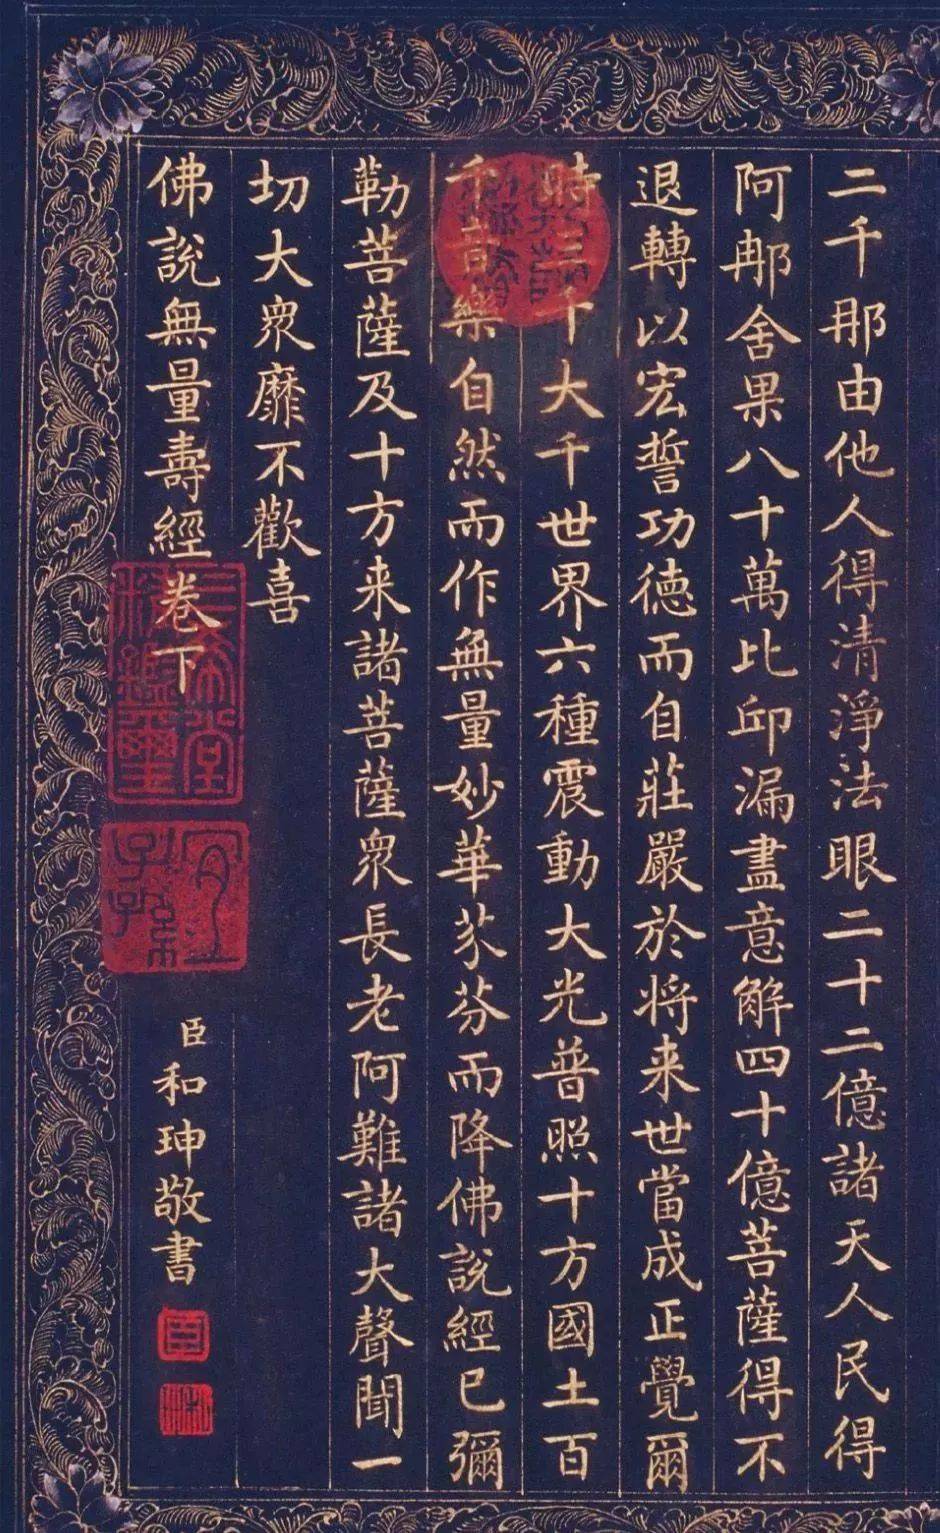 二千那由他人得清淨法眼二十二億諸天人民得
阿那舍果八十萬比邱漏盡意解四十億菩薩得不
退轉以宏誓功德而自莊嚴於將来世當成正覺爾
時三千大千世界六種震動大光普照十方國土百
千音樂自然而作無量妙華芬芬而降佛說經已彌
勒菩薩及十方来諸菩薩眾長老阿難諸大聲聞一
切大眾靡不歡喜
佛說無量壽經卷下
三希堂精鑑璽
宜子孫
臣和珅敬書
臣